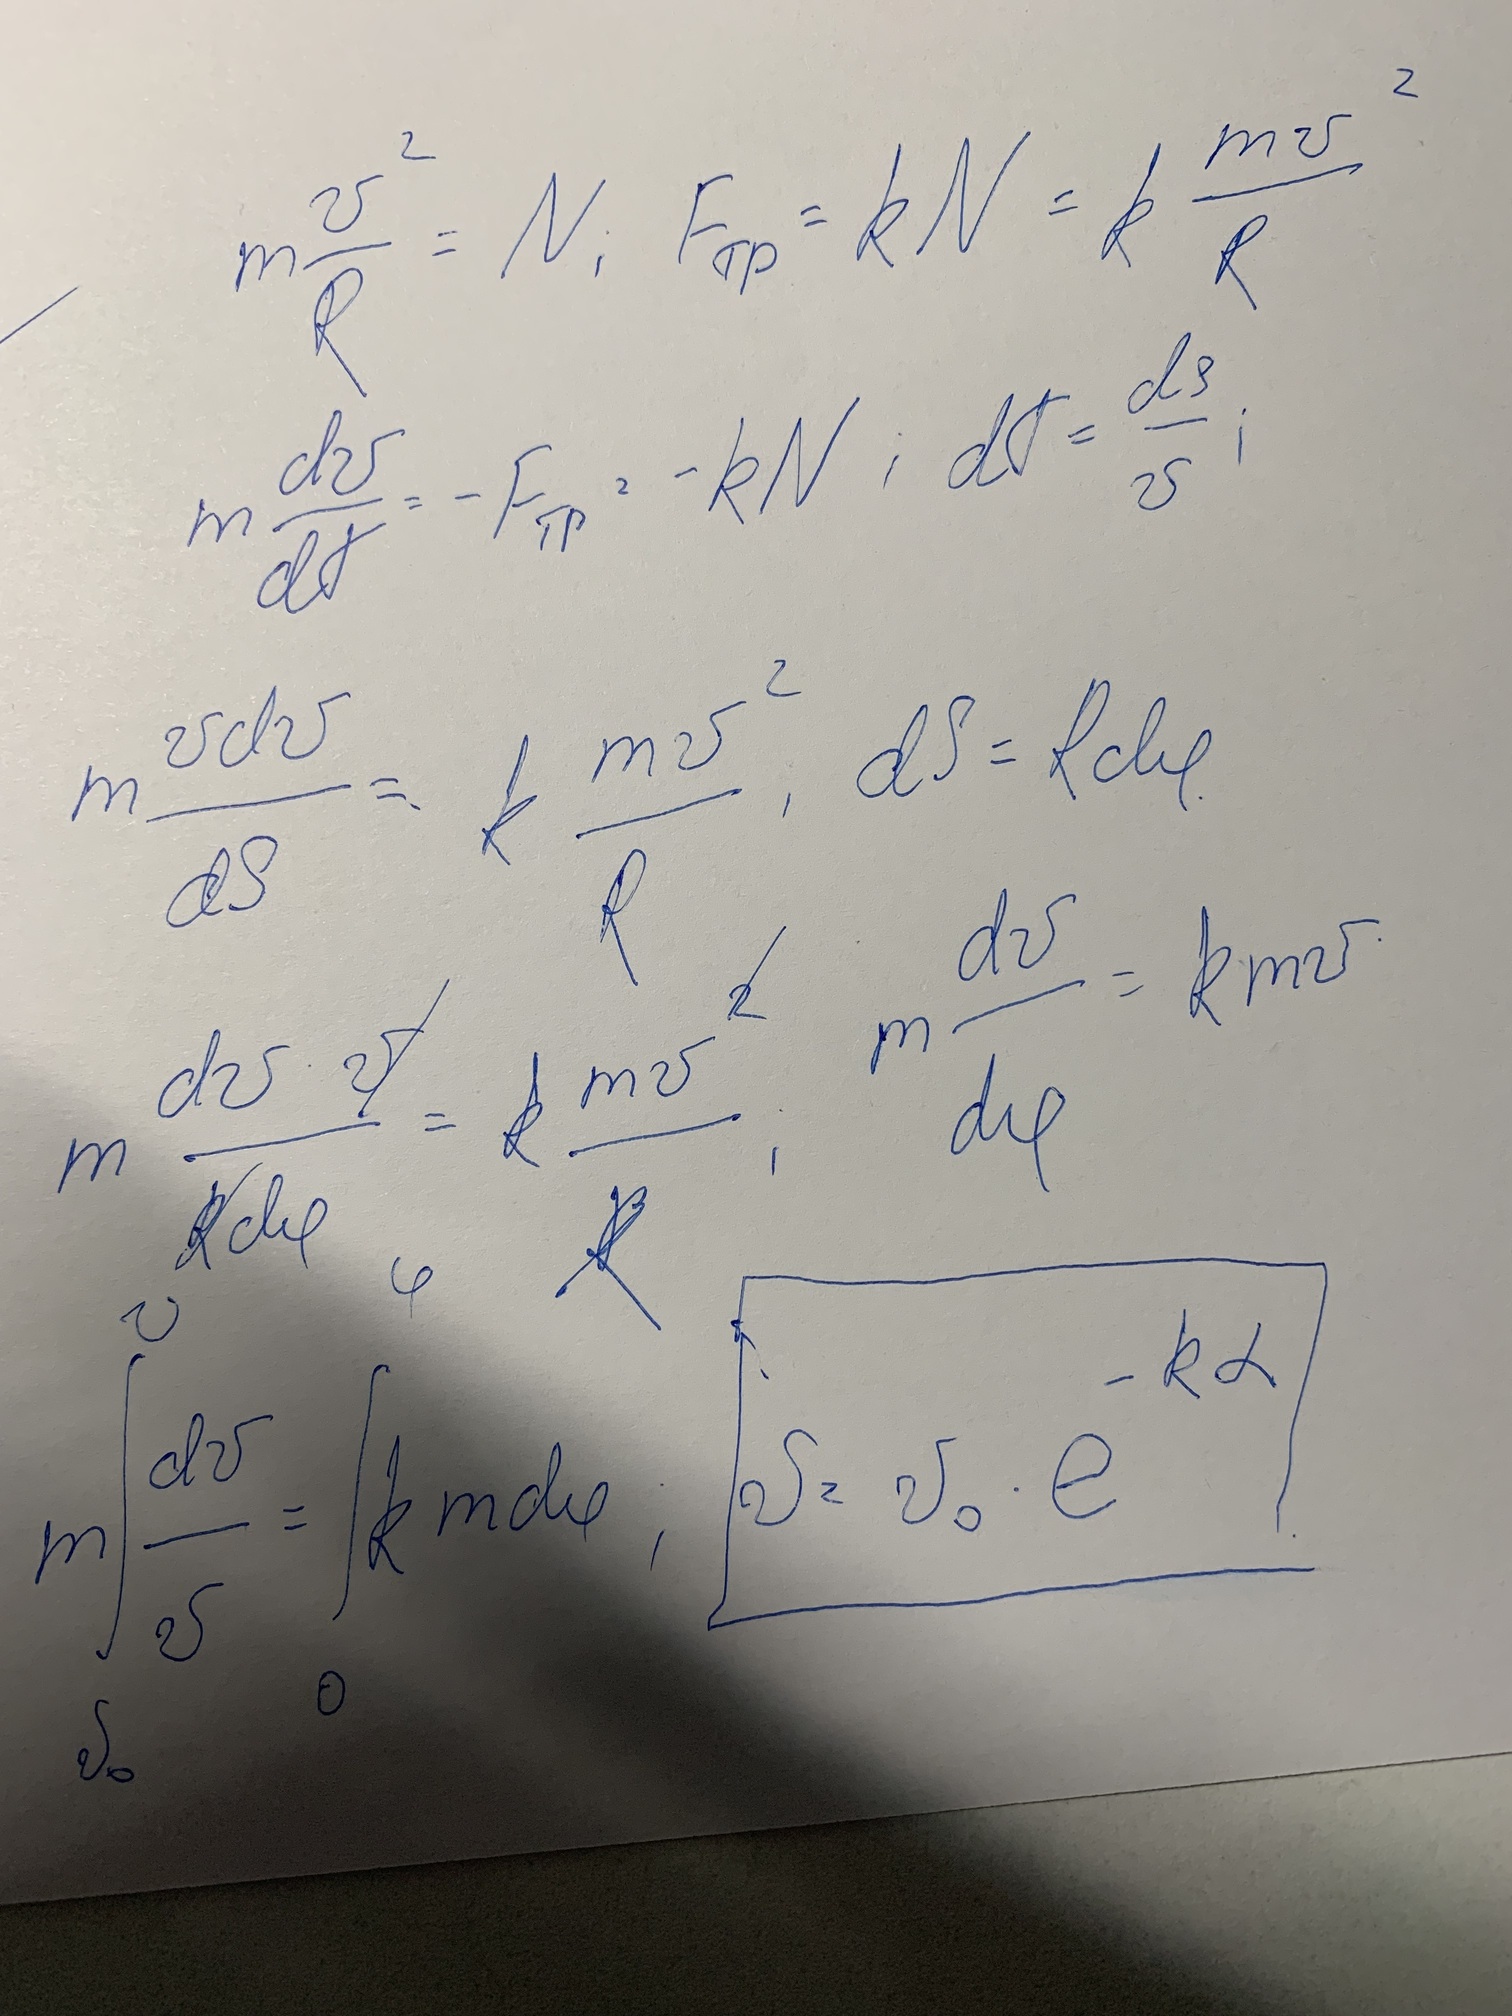 m v²/R = N; Fтр = kN = k mv²/R
m dv/dt = -Fтр = -kN; dt = dS/v;
m vdv/dS = k mv²/R, dS = Rdφ
m dv·v/Rdφ = k mv²/R; m dv/dφ = kmv
m ∫_{v₀}^{v} dv/v = ∫_{0}^{φ} kmdφ; v = v₀·e^{-kα}